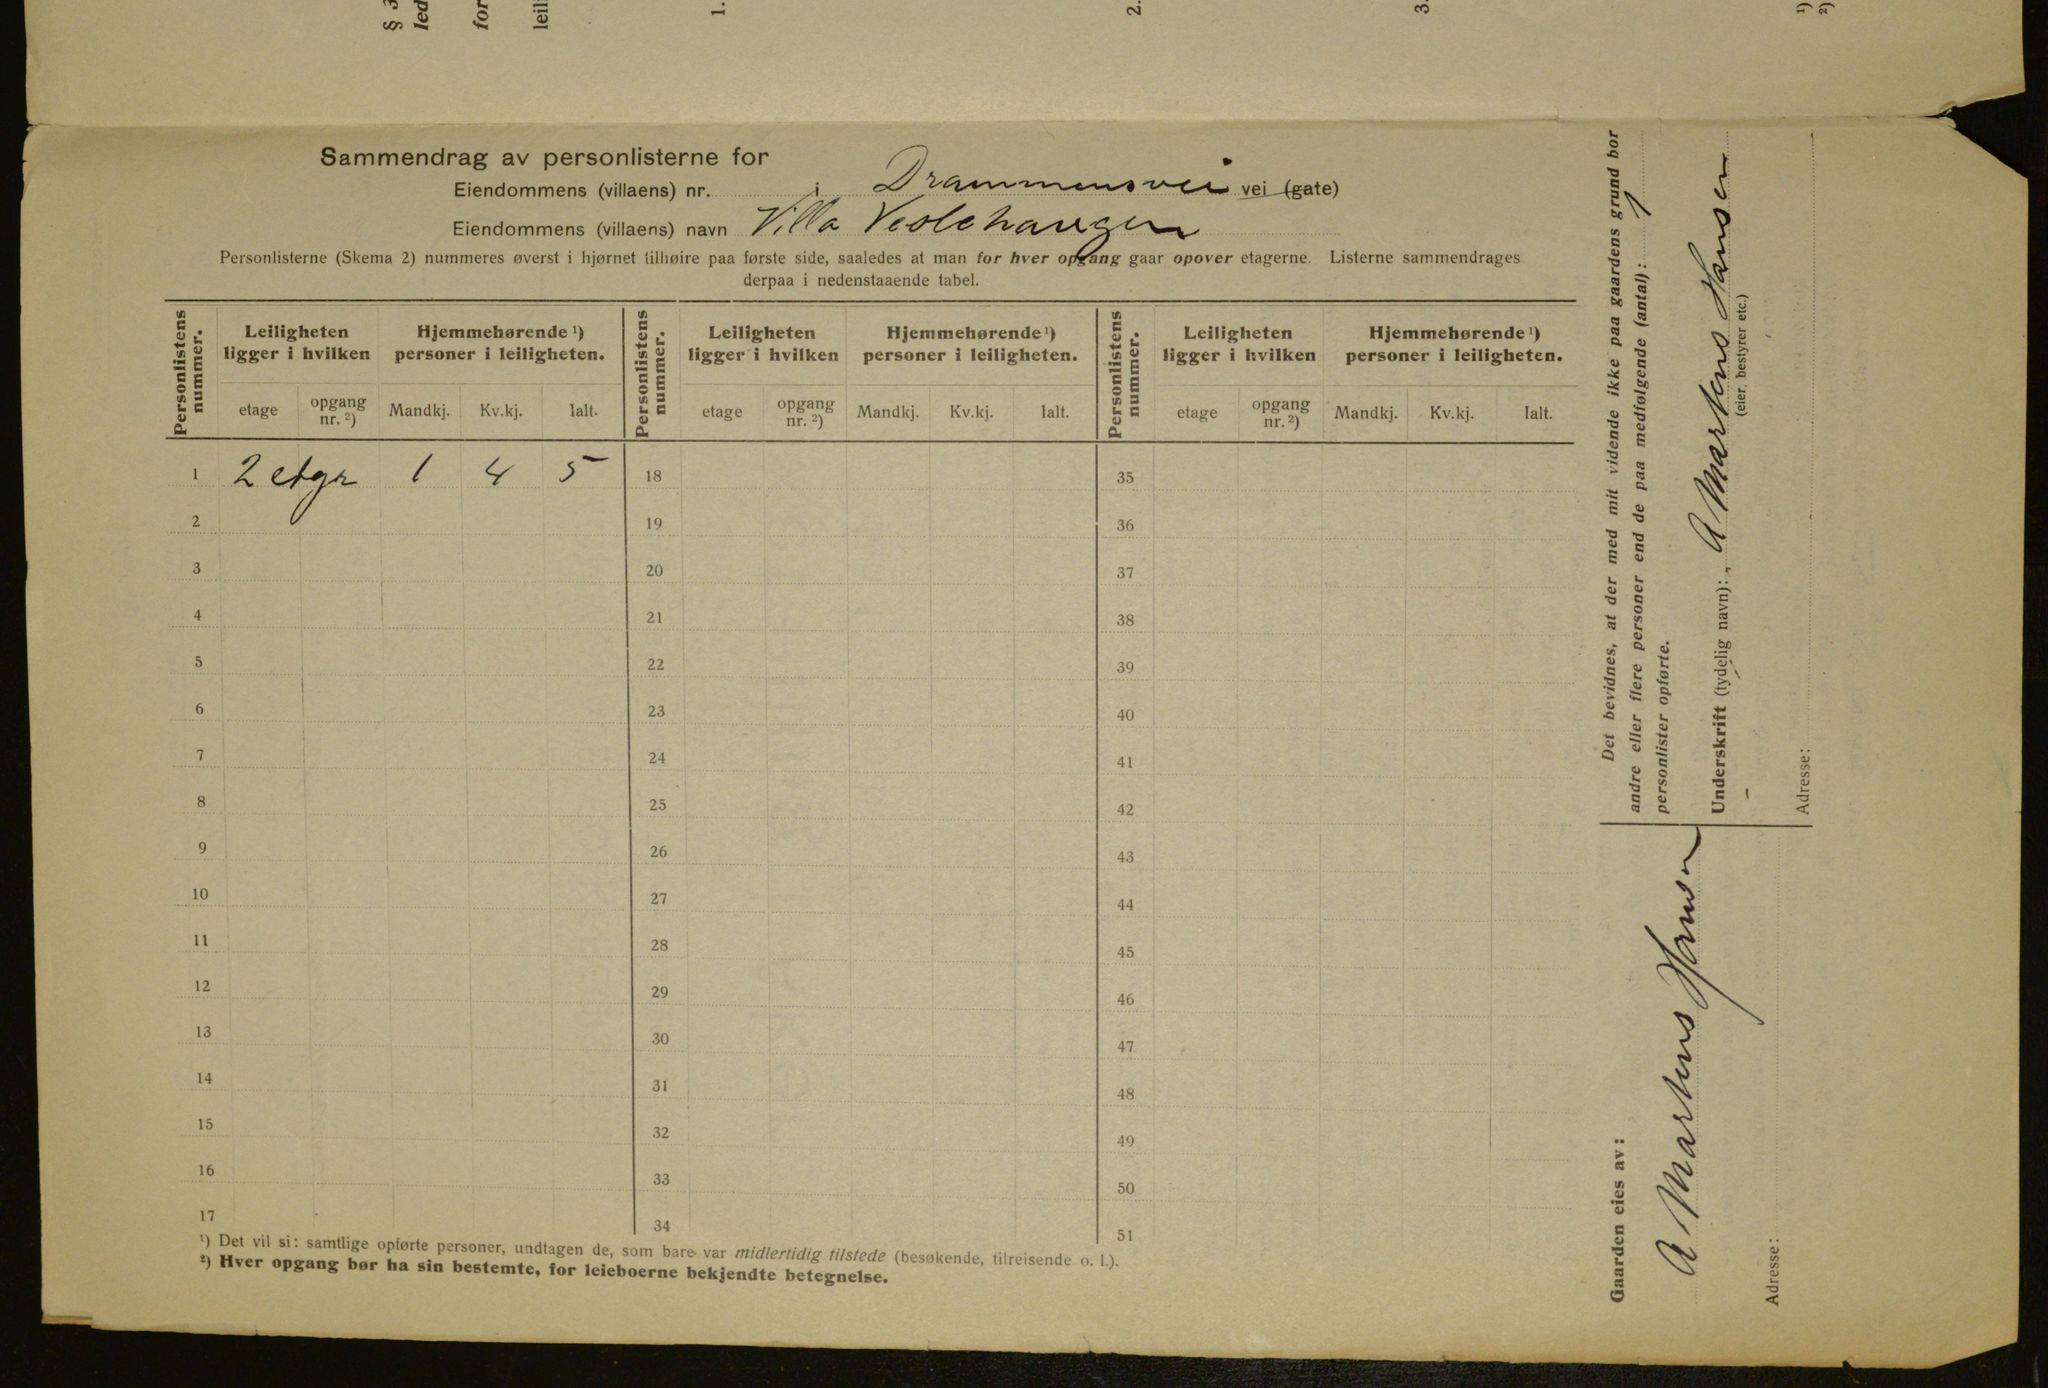 § 3
led
for
leil
1.
2.
3.
¹)
²)
Sammendrag av personlisterne for
Eiendommens (villaens) nr. i Drammensvei vei (gate)
Eiendommens (villaens) navn Villa Veslehaugen
Personlisterne (Skema 2) nummeres øverst i hjørnet tilhøire paa første side, saaledes at man for hver opgang gaar opover etagerne. Listerne sammendrages
derpaa i nedenstaaende tabel.
Personlistens nummer. Leiligheten ligger i hvilken Hjemmehørende ¹) personer i leiligheten. Personlistens nummer. Leiligheten ligger i hvilken Hjemmehørende ¹) personer i leiligheten. Personlistens nummer. Leiligheten ligger i hvilken Hjemmehørende ¹) personer i leiligheten.
etage opgang nr. ²) Mandkj. Kv.kj. Ialt. etage opgang nr. ²) Mandkj. Kv.kj. Ialt. etage opgang nr. ²) Mandkj. Kv.kj. Ialt.
1 2 etgr 1 4 5 18 35
2 19 36
3 20 37
4 21 38
5 22 39
6 23 40
7 24 41
8 25 42
9 26 43
10 27 44
11 28 45
12 29 46
13 30 47
14 31 48
15 32 49
16 33 50
17 34 51
¹) Det vil si: samtlige opførte personer, undtagen de, som bare var midlertidig tilstede (besøkende, tilreisende o. l.).
²) Hver opgang bør ha sin bestemte, for leieboerne bekjendte betegnelse.
Det bevidnes, at der med mit vidende ikke paa gaardens grund bor
andre eller flere personer end de paa medfølgende (antal): 1
personlister opførte.
Underskrift (tydelig navn): A Martens Hansen
(eier, bestyrer etc.)
Adresse:
Gaarden eies av:
A Martens Hansen
Adresse: